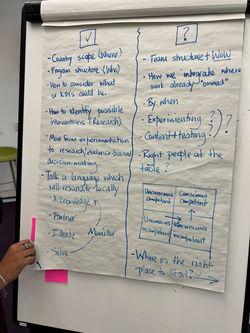 ✓
- Country scope (Where)
- Program structure (Who)
- How to consider what
KPIs could be.
- How to identify possible
interventions (Research)
- Move from experimentation
to research/evidence-based
decision-making
- Talk a language which
will resonate locally
- Acknowledge
- Partner
- Ideate Monitor
- Solve
?
- Team structure + WOW
- How we integrate where
work already "owned"
- By when
- Experimenting ?
- Content + testing ?
- Right people at the
table?
Unconscious Conscious
competent competent
Unconscious Conscious
incompetent incompetent
- Where is the right
place to start?